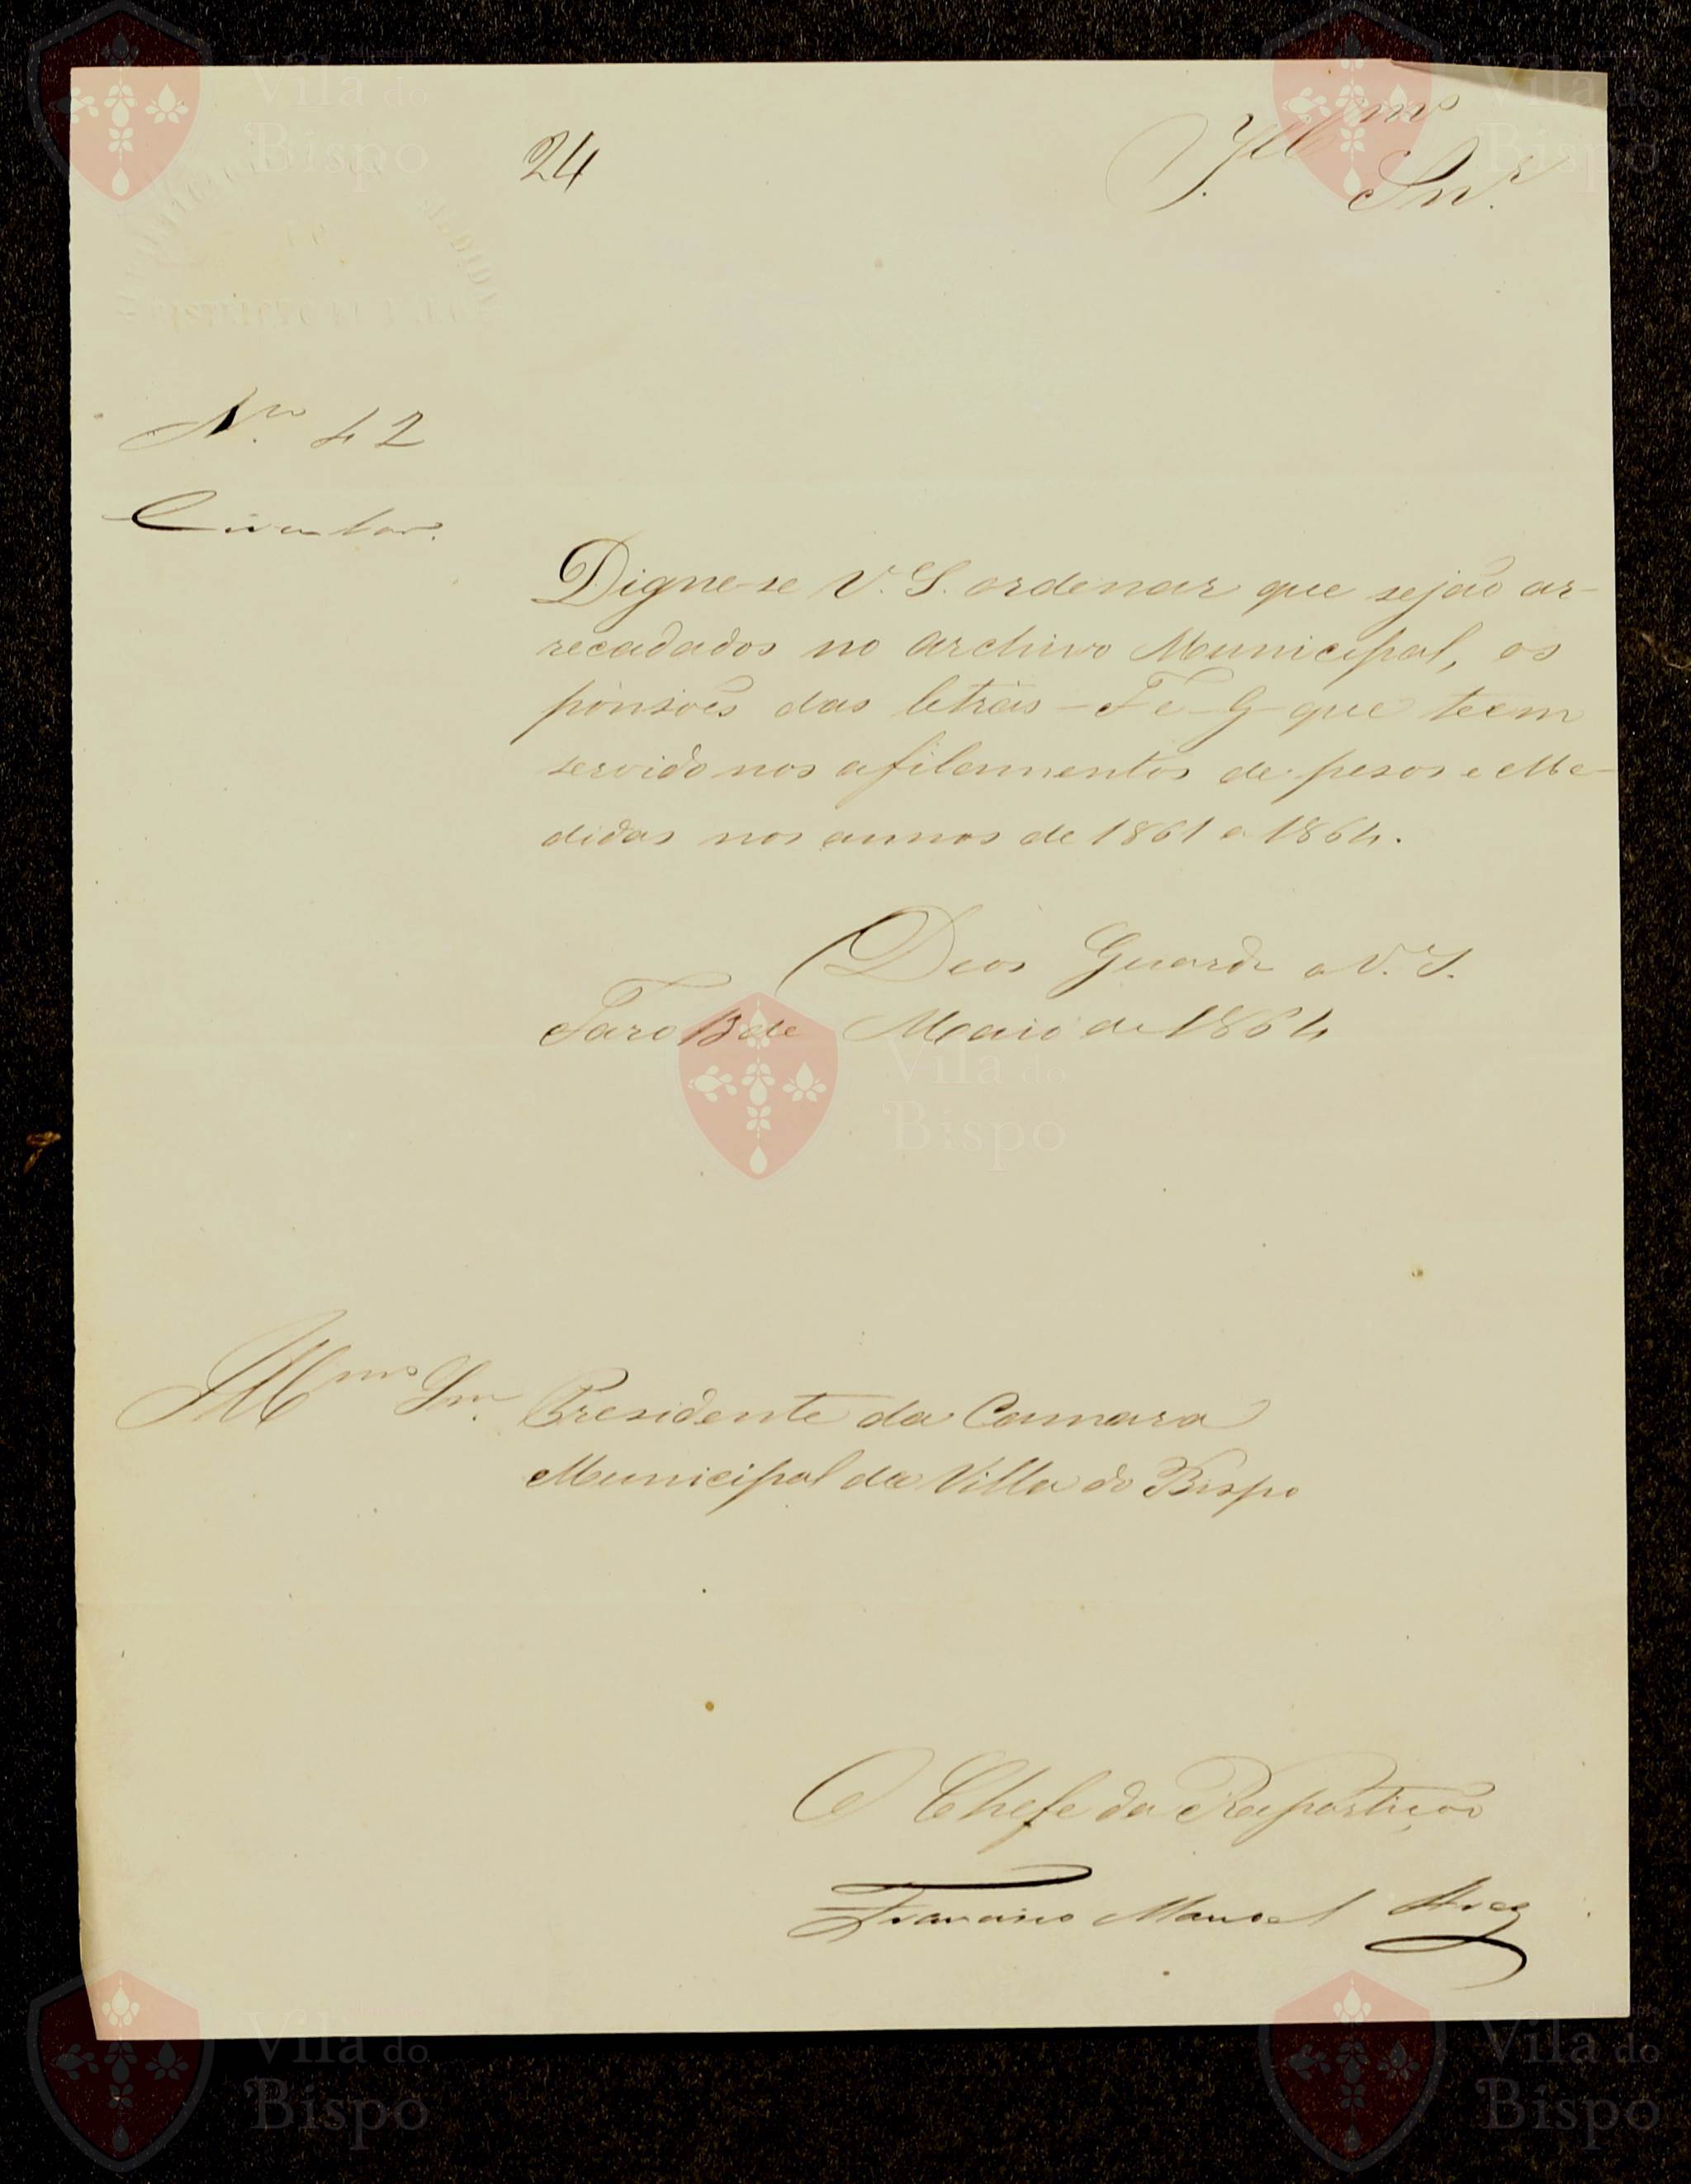 24
Illmo Snr.
No. 42
Circular.
Digne-se V. S. ordenar que sejão ar-
recadados no archivo Municipal, os
ponsões das letras - F e G - que teem
servido nos afilamentos de pesos e Me-
didas nos annos de 1861 a 1864.
Deos Guarde a V. S.
Faro 13 de Maio de 1864
Illmo Snr. Presidente da Camara
Municipal da Villa do Bispo
O Chefe da Repartição
Francisco Manoel
Vila do
Bispo
Vila do
Bispo
Vila do
Bispo
Vila do
Bispo
Vila do
Bispo